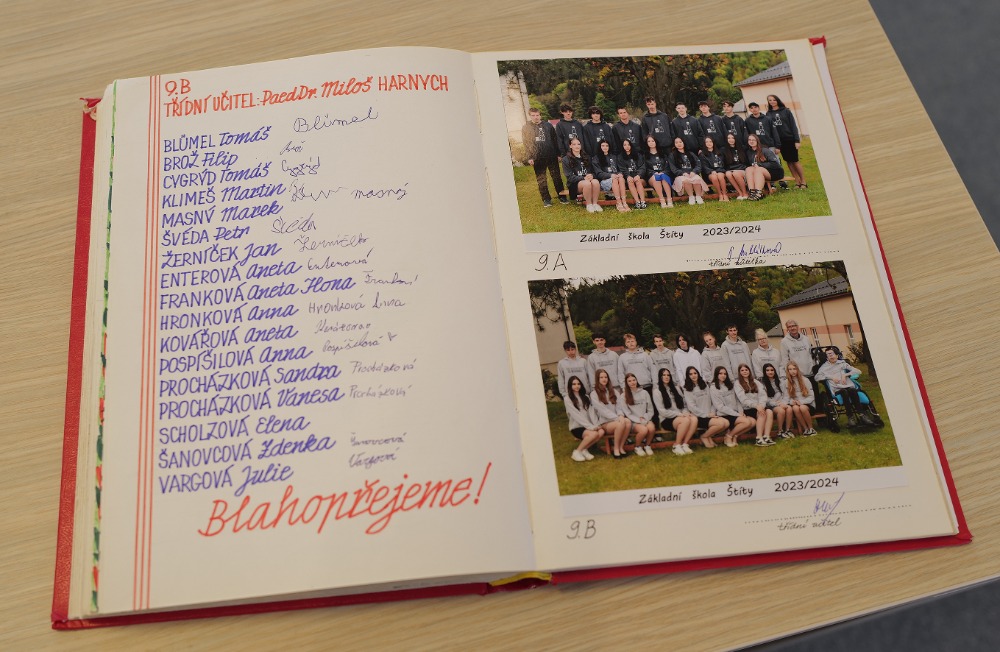 9.B
TŘÍDNÍ UČITEL: PaedDr. Miloš HARNYCH
BLÜMEL Tomáš Blümel
BROŽ Filip
CYGRÝD Tomáš Cygrýd
KLIMEŠ Martin
MASNÝ Marek masný
ŠVÉDA Petr Švéda
ŽERNÍČEK Jan Žerníček
ENTEROVÁ Aneta Enterová
FRANKOVÁ Aneta Ilona Franková
HRONKOVÁ Anna Hronková Anna
KOVÁŘOVÁ Aneta
POSPÍŠILOVÁ Anna Pospíšilová
PROCHÁZKOVÁ Sandra Procházková
PROCHÁZKOVÁ Vanesa Procházková
SCHOLZOVÁ Elena
ŠANOVCOVÁ Zdenka Šanovcová
VARGOVÁ Julie Vargová
Blahopřejeme!
Základní škola Štíty 2023/2024
9.A
třídní učitelka
Základní škola Štíty 2023/2024
9.B
třídní učitel